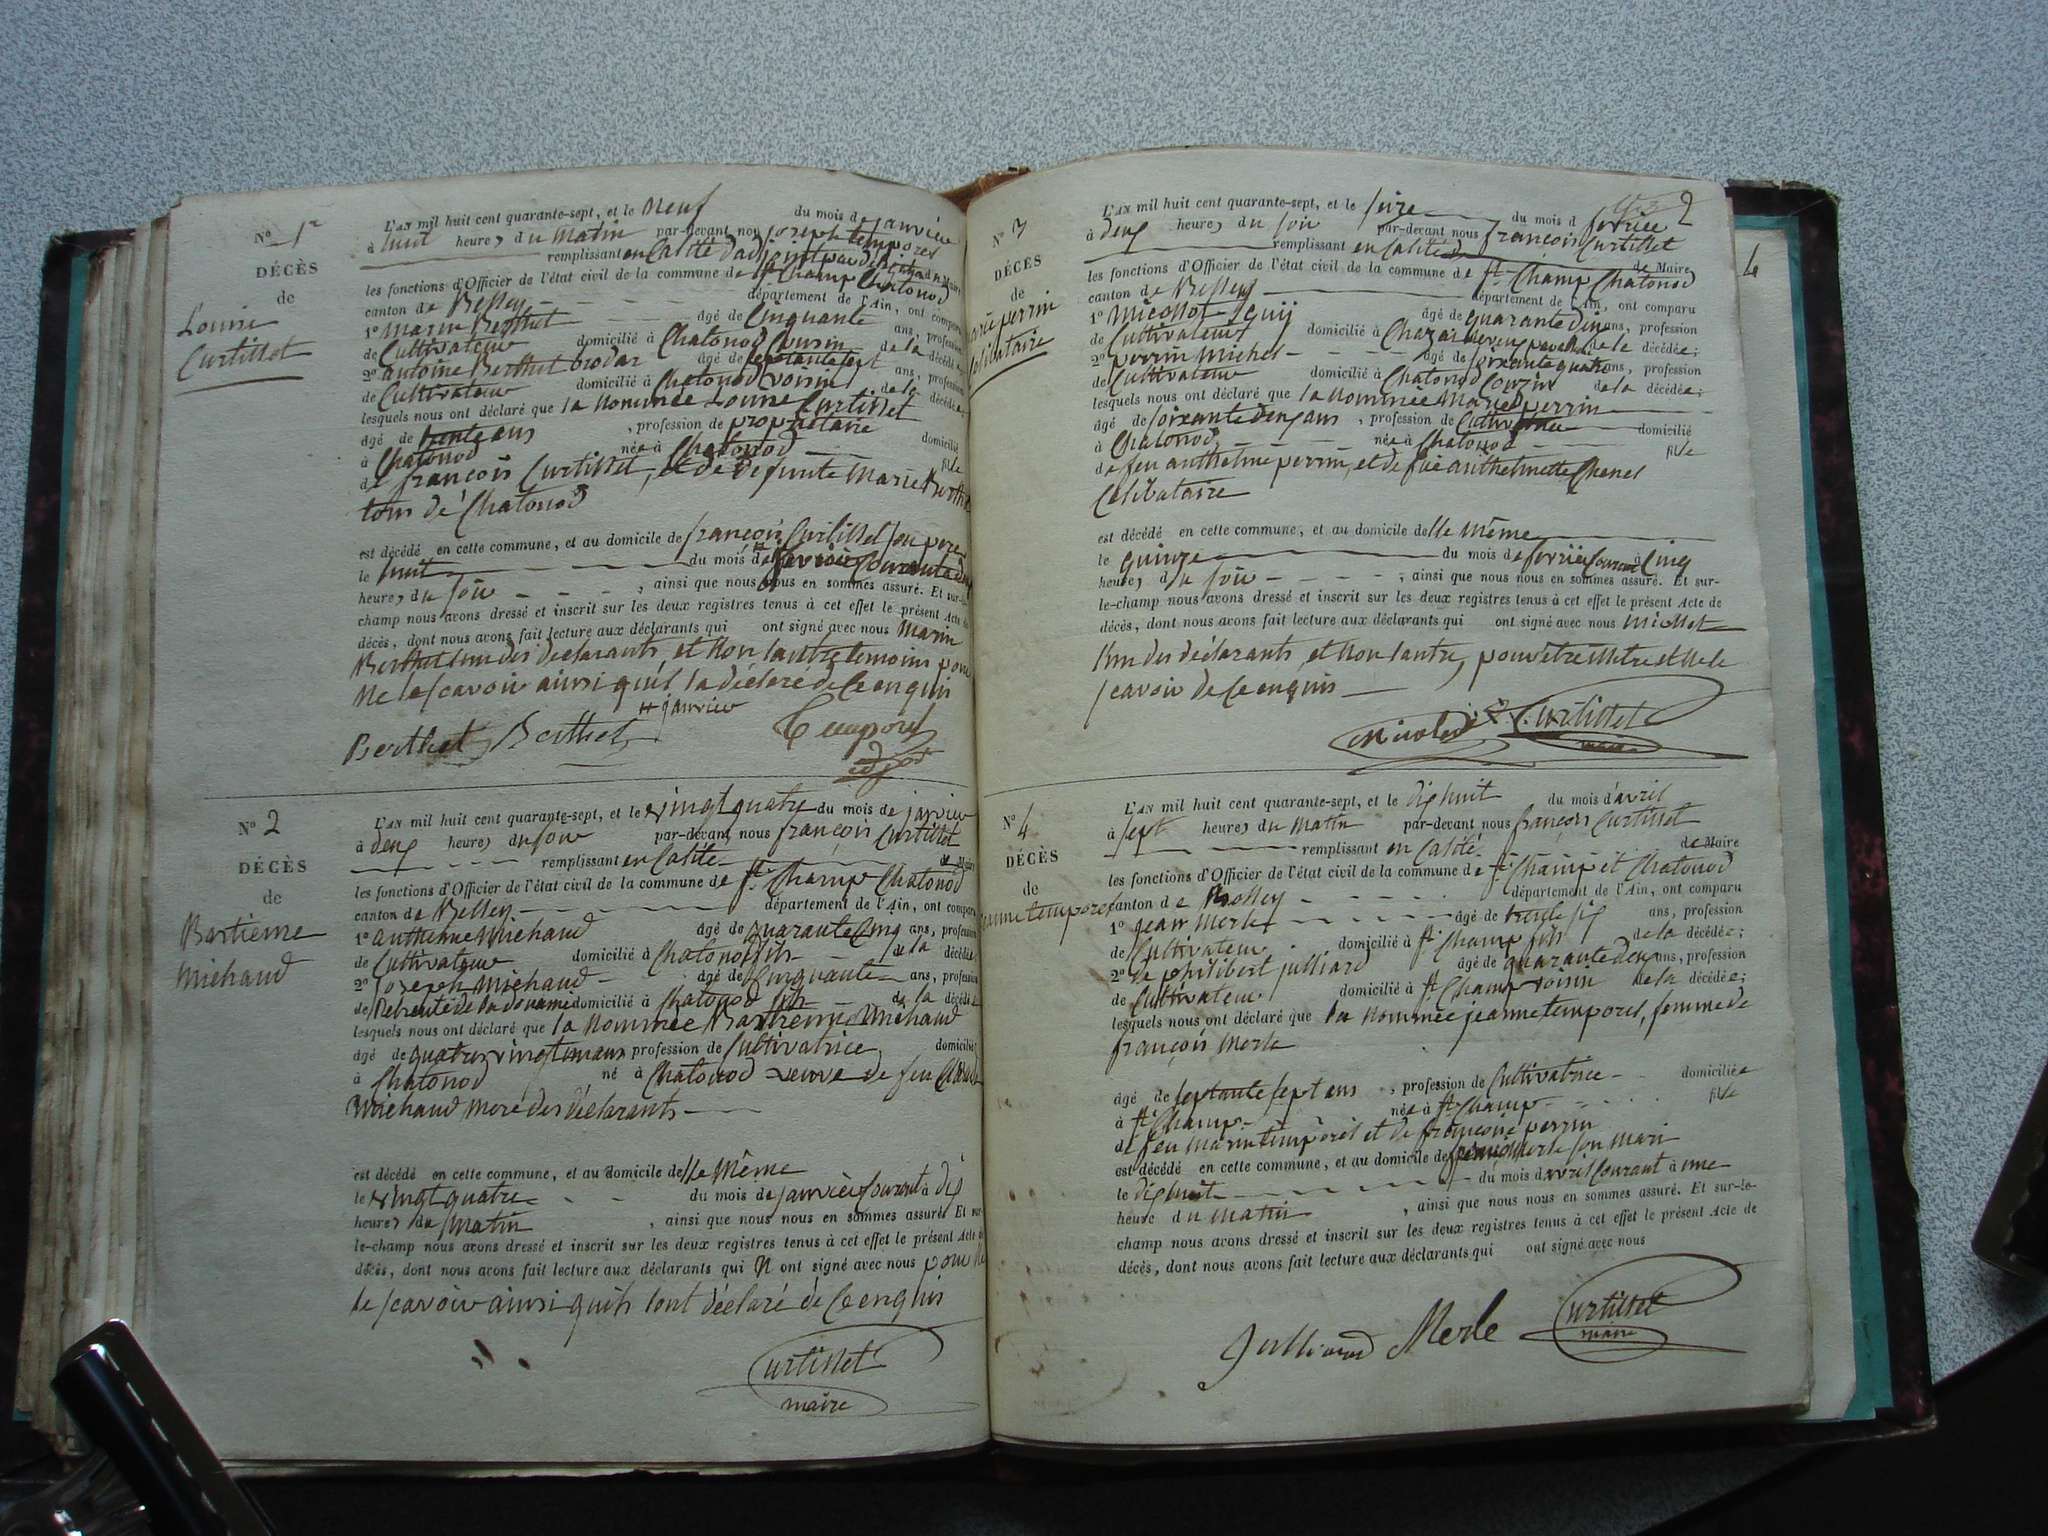 N° 1er
DÉCÈS
de
Louise
Curtillet
L'AN mil huit cent quarante-sept, et le neuf du mois de janvier
à huit heures du matin par-devant nous joseph temporel
remplissant en Calité d'adjoint par
les fonctions d'Officier de l'état civil de la commune de St Champ Chatonod
canton de Belley département de l'Ain, ont comparu
1° Marin Berthet âgé de Cinquante ans, profession
de Cultivateur domicilié à Chatonod Cousin de la décédée
2° antoine Berthet brodar âgé de septante sept ans, profession
de Cultivateur domicilié à Chatonod voisin de la décédée;
lesquels nous ont déclaré que la Nommée Louise Curtillet
âgé de trente ans, profession de propriétaire domicilié
à Chatonod née à Chatonod fille
de françois Curtillet, et de defunte Marie Berthet
tous de Chatonod
est décédé en cette commune, et au domicile de françois Curtillet son pere
le huit du mois de
heures du soir, ainsi que nous nous en sommes assuré. Et sur-le-
champ nous avons dressé et inscrit sur les deux registres tenus à cet effet le présent Acte de
décès, dont nous avons fait lecture aux déclarants qui ont signé avec nous Marin
Berthet l'un des déclarants, et Non l'autre temoins pour
Ne le scavoir ainsi quil la déclaré de Ce enquis
janvier
Berthet Berthet Temporel
N° 2
DÉCÈS
de
Bartieme
Michaud
L'AN mil huit cent quarante-sept, et le vingt quatre du mois de janvier
à deux heures du soir par-devant nous françois Curtillet
remplissant en Calité de Maire
les fonctions d'Officier de l'état civil de la commune de St Champ Chatonod
canton de Belley département de l'Ain, ont comparu
1° anthelme Michaud âgé de quarante Cinq ans, profession
de Cultivateur domicilié à Chatonod fils de la décédée
2° joseph Michaud âgé de Cinquante ans, profession
de Retraité de la douanne domicilié à Chatonod fils de la décédée
lesquels nous ont déclaré que la Nommée Michaud
âgé de quatre vingt un ans profession de Cultivatrice domicilié
à Chatonod né à Chatonod veuve de feu Claude
Michaud mere des déclarants
est décédé en cette commune, et au domicile de elle Même
le vingt quatre du mois de janvier Courant à dix
heures du matin, ainsi que nous nous en sommes assuré. Et sur-
le-champ nous avons dressé et inscrit sur les deux registres tenus à cet effet le présent Acte de
décès, dont nous avons fait lecture aux déclarants qui n ont signé avec nous pour ne
le scavoir ainsi quils lont déclaré de Ce enquis
Curtillet
maire
2
4
N° 3
DÉCÈS
de
Marie perrin
Celibataire
L'AN mil huit cent quarante-sept, et le seize du mois d fevrier
à deux heures du soir par-devant nous françois Curtillet
remplissant en Calité de Maire
les fonctions d'Officier de l'état civil de la commune de St Champ Chatonod
canton de Belley département de l'Ain, ont comparu
1° Micollet âgé de quarante ans, profession
de Cultivateur domicilié à de la décédée;
2° perrin Michel âgé de soixante quatre ans, profession
de Cultivateur domicilié à Chatonod Couzin de la décédée;
lesquels nous ont déclaré que la Nommée Marie perrin
âgé de soixante deux ans, profession de domicilié
à Chatonod née à Chatonod fille
de feu anthelme perrin, et de fue anthelmette Chenel
Celibataire
est décédé en cette commune, et au domicile de elle Même
le quinze du mois de fevrier Courant à Cinq
heures du soir, ainsi que nous nous en sommes assuré. Et sur-
le-champ nous avons dressé et inscrit sur les deux registres tenus à cet effet le présent Acte de
décès, dont nous avons fait lecture aux déclarants qui ont signé avec nous
l'un des déclarants, et Non l'autre, pour
scavoir de Ce enquis
Curtillet
maire
N° 4
DÉCÈS
de
jeanne temporel
L'AN mil huit cent quarante-sept, et le dix huit du mois d'avril
à sept heures du matin par-devant nous françois Curtillet
remplissant en Calité de Maire
les fonctions d'Officier de l'état civil de la commune de St Champ et Chatonod
canton de Belley département de l'Ain, ont comparu
1° jean Merle âgé de trente six ans, profession
de Cultivateur domicilié à St Champ fils de la décédée;
2° de philibert julliard âgé de quarante deux ans, profession
de Cultivateur domicilié à St Champ voisin de la décédée;
lesquels nous ont déclaré que la Nommée jeanne temporel, femme de
françois Merle
âgé de septante sept ans, profession de Cultivatrice domiciliée
à St Champ née à St Champ fille
de feu Marin temporel et de françoise perrin
est décédé en cette commune, et au domicile de Merle son Mari
le dix huit du mois d'avril Courant à une
heure du matin, ainsi que nous nous en sommes assuré. Et sur-le-
champ nous avons dressé et inscrit sur les deux registres tenus à cet effet le présent Acte de
décès, dont nous avons fait lecture aux déclarants qui ont signé avec nous
Julliard Merle Curtillet
maire